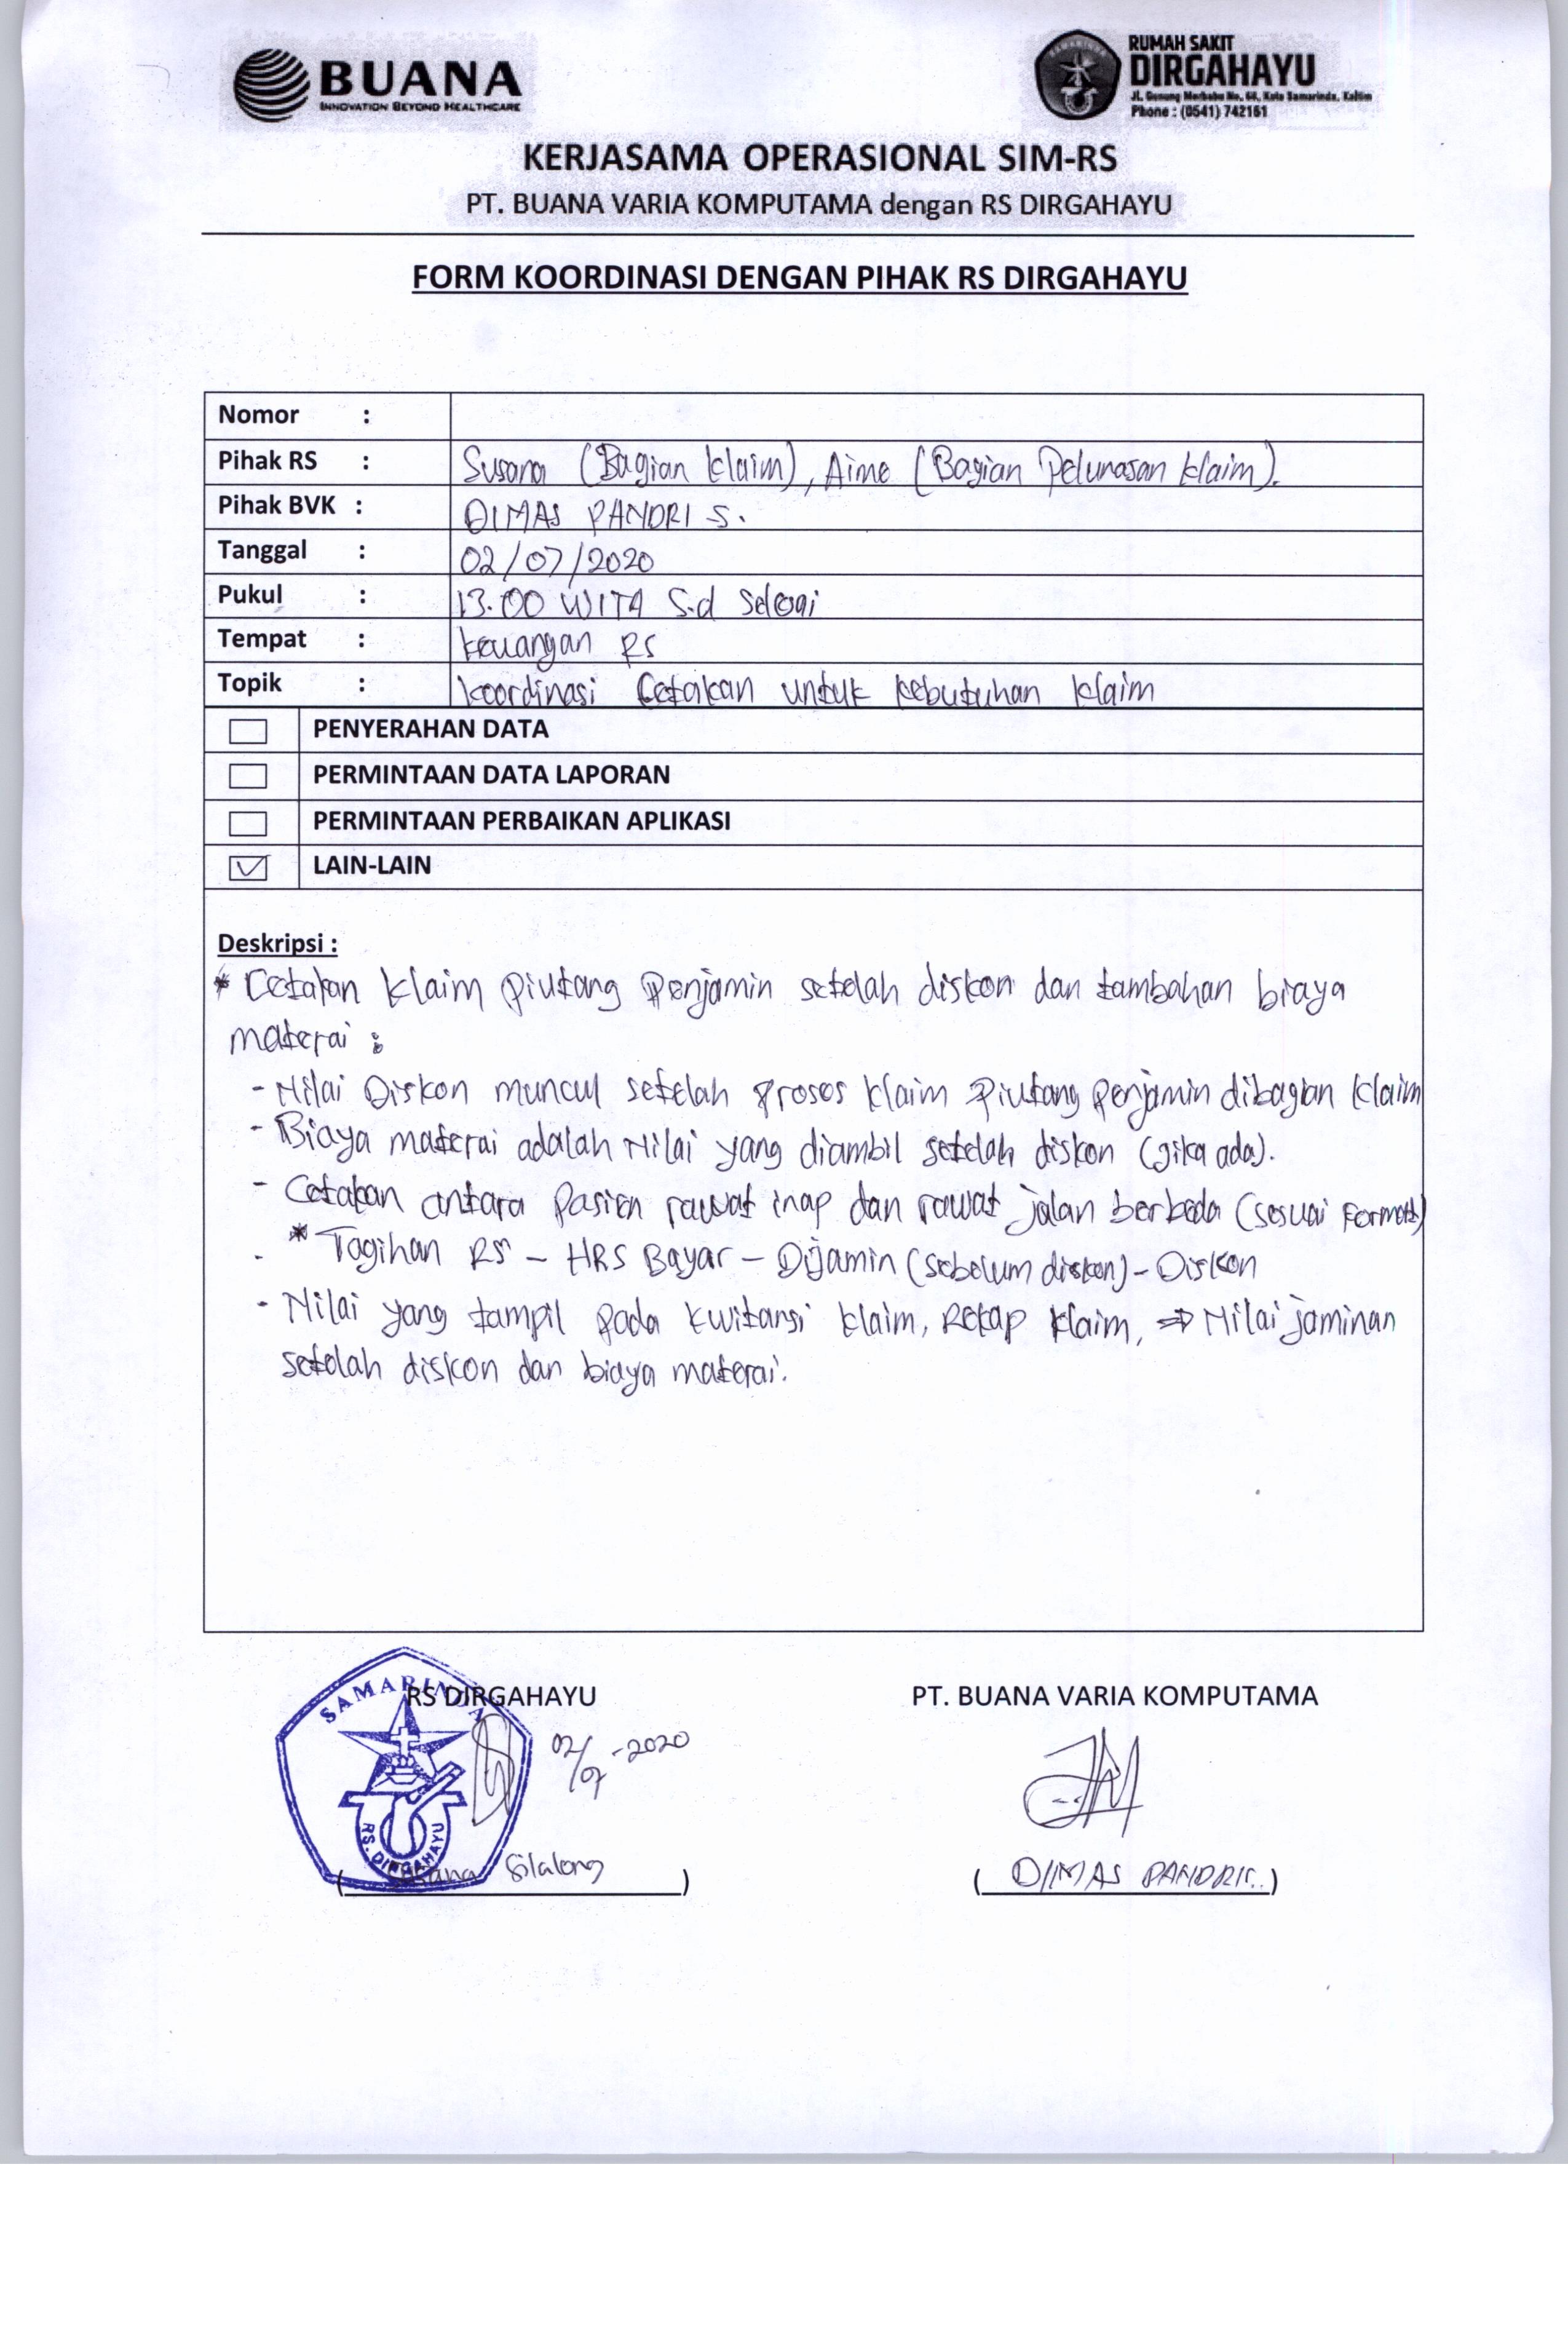 BUANA
INNOVATION BEYOND HEALTHCARE
RUMAH SAKIT
DIRGAHAYU
Jl. Gunung Merbabu No. 62, Kota Samarinda, Kaltim
Phone : (0541) 742161
KERJASAMA OPERASIONAL SIM-RS
PT. BUANA VARIA KOMPUTAMA dengan RS DIRGAHAYU
FORM KOORDINASI DENGAN PIHAK RS DIRGAHAYU
Nomor :
Pihak RS : Susana (Bagian Klaim), Aime (Bagian Pelunasan Klaim).
Pihak BVK : DIMAS PANDRI S.
Tanggal : 02/07/2020
Pukul : 13.00 WITA S.d Selesai
Tempat : Keuangan RS
Topik : Koordinasi Cetakan untuk kebutuhan Klaim
PENYERAHAN DATA
PERMINTAAN DATA LAPORAN
PERMINTAAN PERBAIKAN APLIKASI
LAIN-LAIN
Deskripsi :
* Cetakan Klaim Piutang Penjamin setelah diskon dan tambahan biaya
materai :
- Nilai Diskon muncul setelah proses klaim Piutang Penjamin dibagian Klaim
- Biaya materai adalah Nilai yang diambil setelah diskon (jika ada).
- Cetakan antara Pasien rawat inap dan rawat jalan berbeda (sesuai Format)
- * Tagihan RS - HRS Bayar - Dijamin (sebelum diskon) - Diskon
- Nilai yang tampil pada kwitansi klaim, Rekap klaim, ⇒ Nilai jaminan
setelah diskon dan biaya materai.
RS DIRGAHAYU
PT. BUANA VARIA KOMPUTAMA
SAMARINDA
02/07-2020
RS. DIRGAHAYU
( Silalong )
( DIMAS PANDRI S.. )